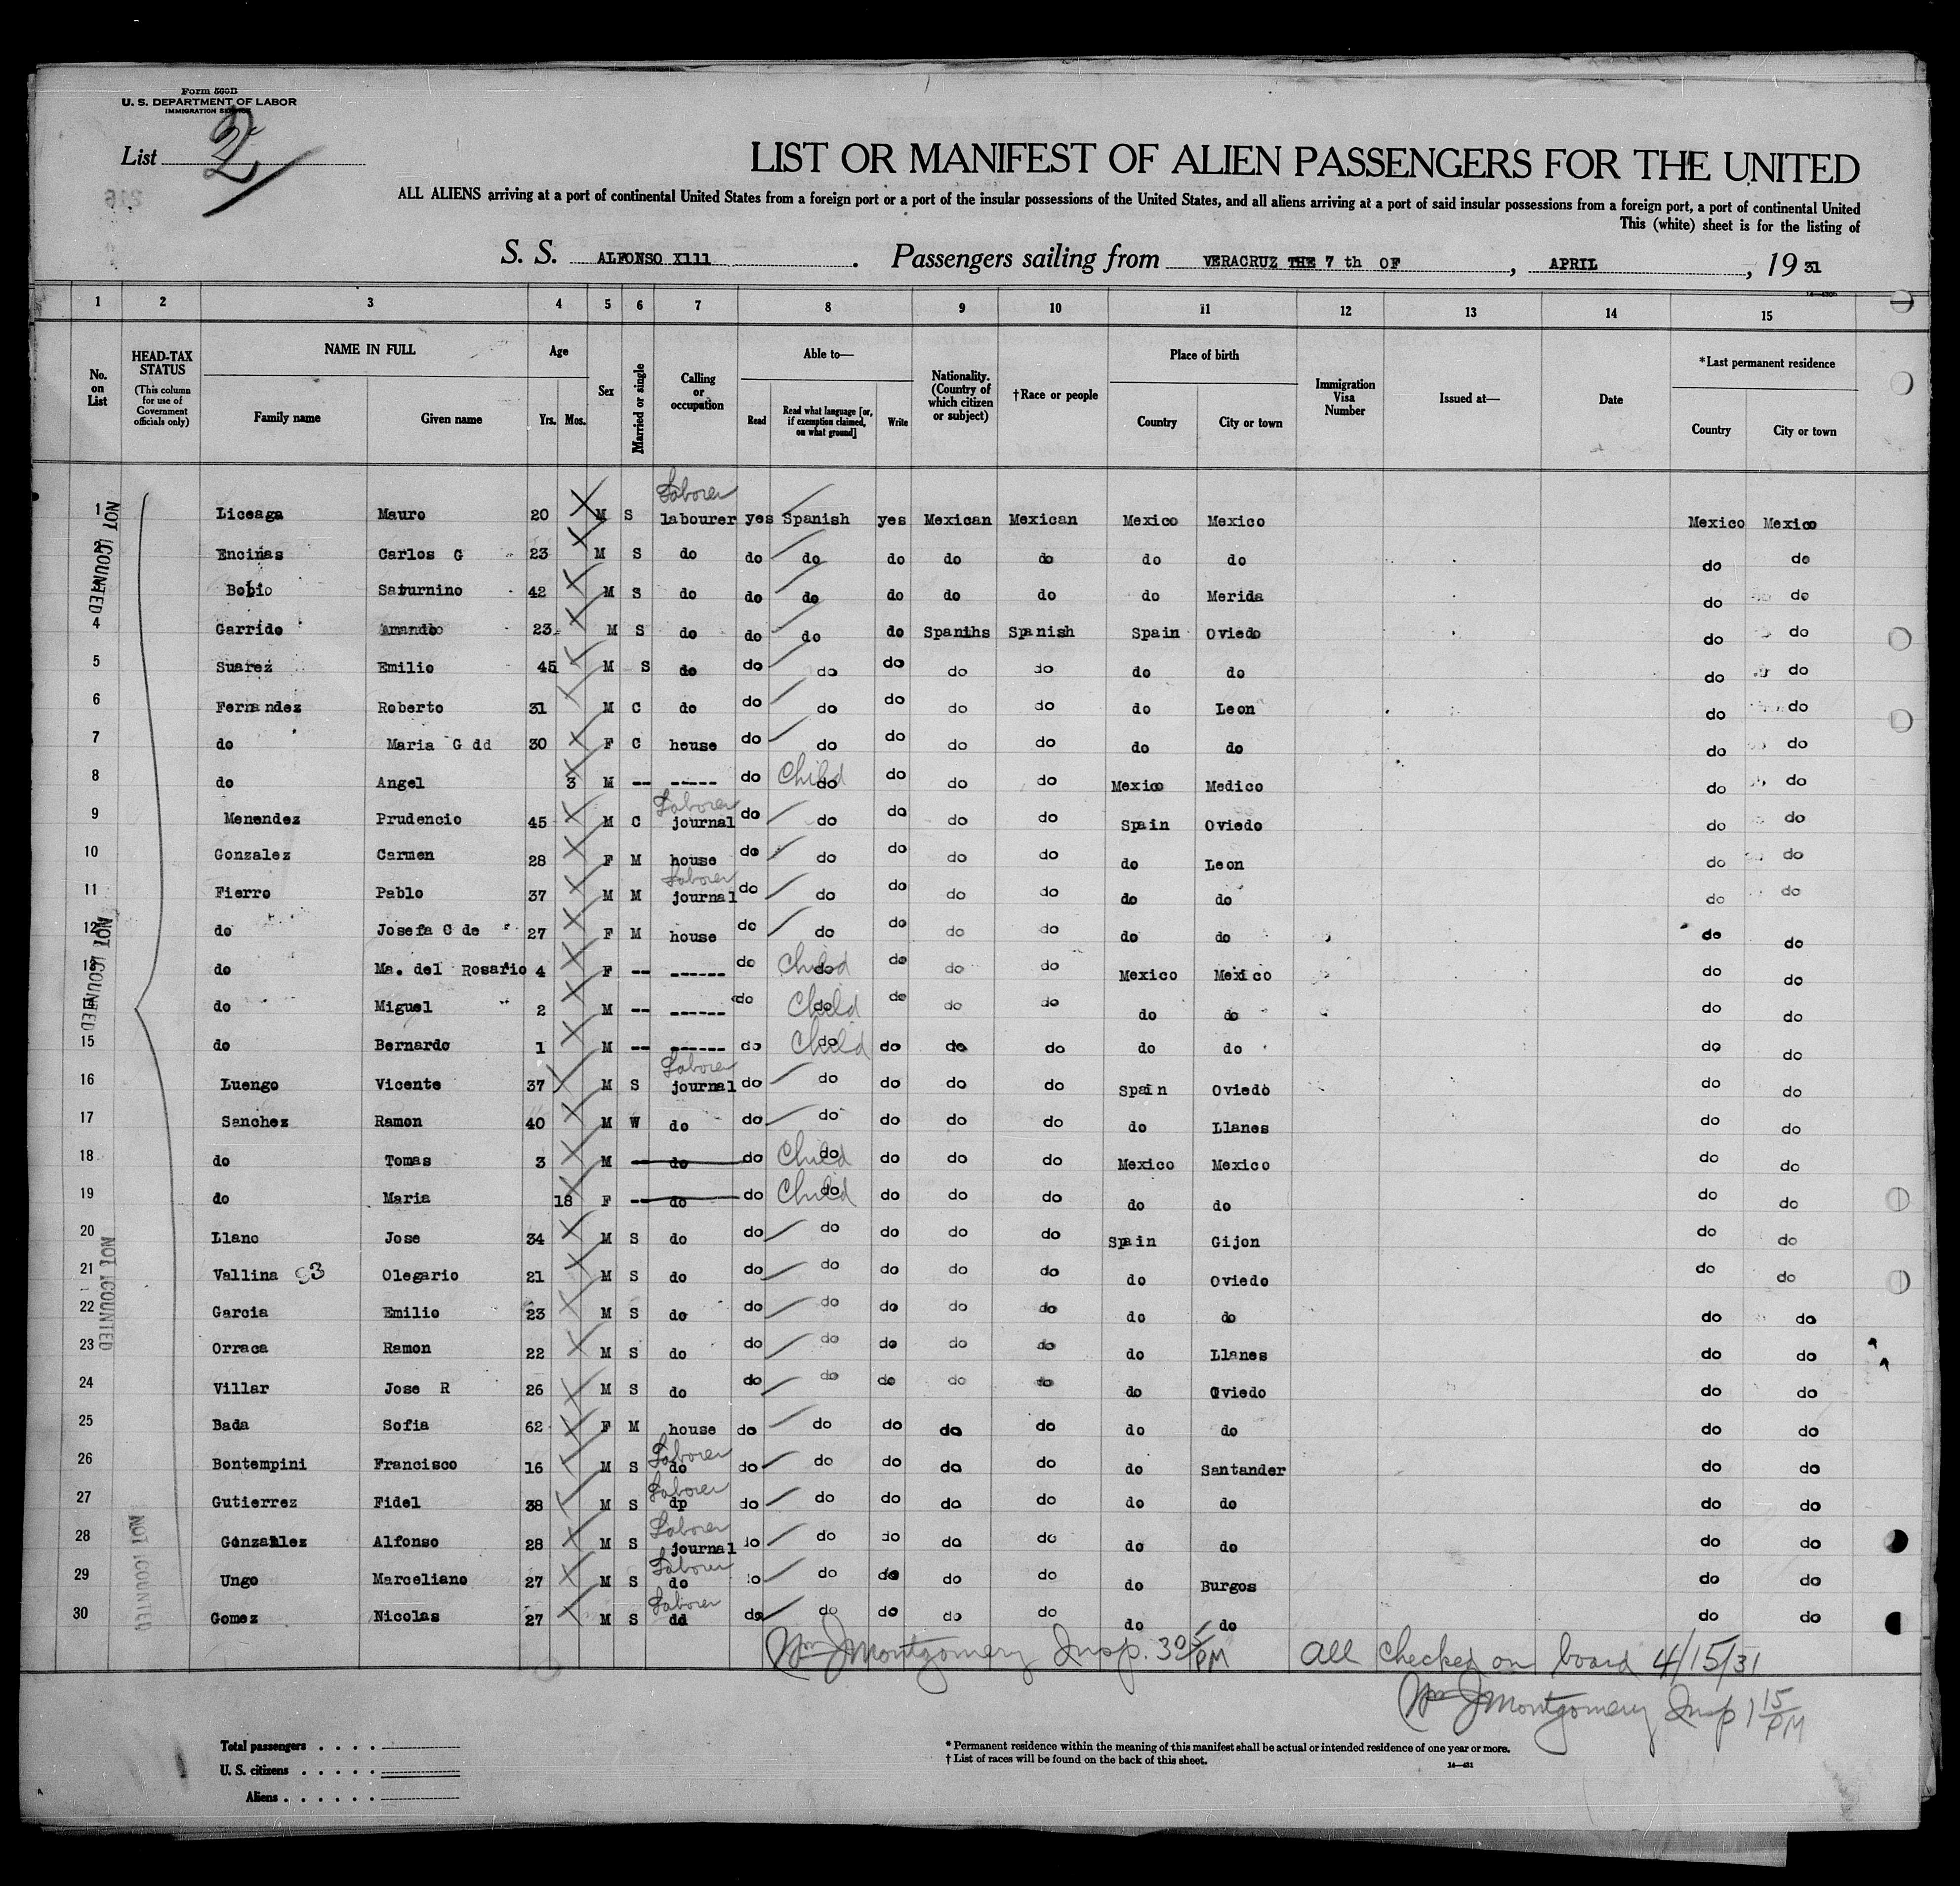 Form 500B
U. S. DEPARTMENT OF LABOR
IMMIGRATION SERVICE
List 2
LIST OR MANIFEST OF ALIEN PASSENGERS FOR THE UNITED
ALL ALIENS arriving at a port of continental United States from a foreign port or a port of the insular possessions of the United States, and all aliens arriving at a port of said insular possessions from a foreign port, a port of continental United
This (white) sheet is for the listing of
S. S. ALFONSO X111. Passengers sailing from VERACRUZ THE 7 th OF, APRIL, 19 31
1 2 3 4 5 6 7 8 9 10 11 12 13 14 15
No. on List HEAD-TAX STATUS (This column for use of Government officials only) NAME IN FULL Family name Given name Age Yrs. Mos. Sex Married or single Calling or occupation Able to— Read Read what language [or, if exemption claimed, on what ground] Write Nationality. (Country of which citizen or subject) †Race or people Place of birth Country City or town Immigration Visa Number Issued at— Date *Last permanent residence Country City or town
NOT COUNTED
1 Liceaga Mauro 20 M S Laborer labourer yes Spanish yes Mexican Mexican Mexico Mexico Mexico Mexico
Encinas Carlos G 23 M S do do do do do do do do do do
Bobio Saturnino 42 M S do do do do do do do Merida do do
4 Garrido Amando 23 M S do do do do Spanihs Spanish Spain Oviedo do do
5 Suarez Emilio 45 M S do do do do do do do do do do
6 Fernandez Roberto 31 M C do do do do do do do Leon do do
7 do Maria G dd 30 F C house do do do do do do do do do
8 do Angel 3 M -- ----- do Child do do do do Mexico Medico do do
9 Menendez Prudencio 45 M C Laborer journal do do do do do Spain Oviedo do do
10 Gonzalez Carmen 28 F M house do do do do do do Leon do do
11 Fierro Pablo 37 M M Laborer journal do do do do do do do do do
12 do Josefa C de 27 F M house do do do do do do do do do
NOT COUNTED
13 do Ma. del Rosario 4 F -- ------ do Child do do do do Mexico Mexico do do
14 do Miguel 2 M -- ------ do Child do do do do do do do do
15 do Bernardo 1 M -- ------ do Child do do do do do do do do
16 Luengo Vicente 37 M S Laborer journal do do do do do Spain Oviedo do do
17 Sanchez Ramon 40 M W do do do do do do do Llanes do do
18 do Tomas 3 M -- do do Child do do do do Mexico Mexico do do
19 do Maria 18 F -- do do Child do do do do do do do do
20 Llano Jose 34 M S do do do do do do Spain Gijon do do
NOT COUNTED
21 Vallina 93 Olegario 21 M S do do do do do do do Oviedo do do
22 Garcia Emilio 23 M S do do do do do do do do do do
23 Orraca Ramon 22 M S do do do do do do do Llanes do do
24 Villar Jose R 26 M S do do do do do do do Oviedo do do
25 Bada Sofia 62 F M house do do do do do do do do do
26 Bontempini Francisco 16 M S Laborer do do do do do do do Santander do do
27 Gutierrez Fidel 38 M S Laborer dp do do do do do do do do do
NOT COUNTED
28 Gonzallez Alfonso 28 M S Laborer journal do do do do do do do do do
29 Ungo Marceliano 27 M S Laborer do do do do do do do Burgos do do
30 Gomez Nicolas 27 M S Laborer dd do do do do do do do do do
Wm J Montgomery Insp. 3 05 PM All checked on board 4/15/31
Wm J Montgomery Insp 1 15 PM
Total passengers
U. S. citizens
Aliens
* Permanent residence within the meaning of this manifest shall be actual or intended residence of one year or more.
† List of races will be found on the back of this sheet.
14—421